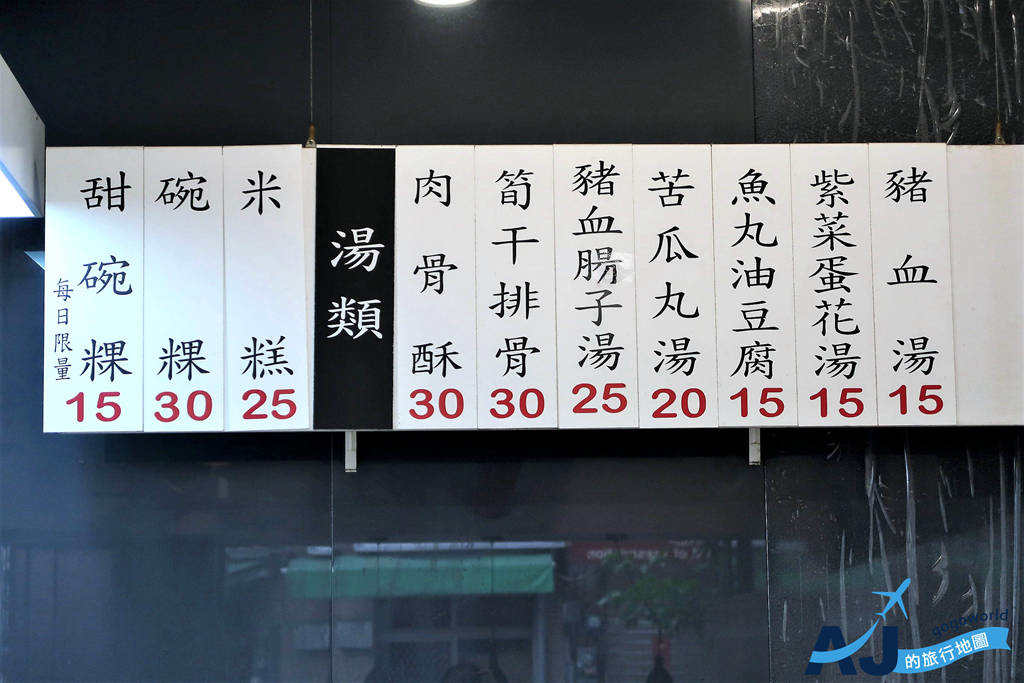 甜碗粿
每日限量
15
碗粿
30
米糕
25
湯類
肉骨酥
30
筍干排骨
30
豬血腸子湯
25
苦瓜丸湯
20
魚丸油豆腐
15
紫菜蛋花湯
15
豬血湯
15
gogoworld
AJ
的旅行地圖